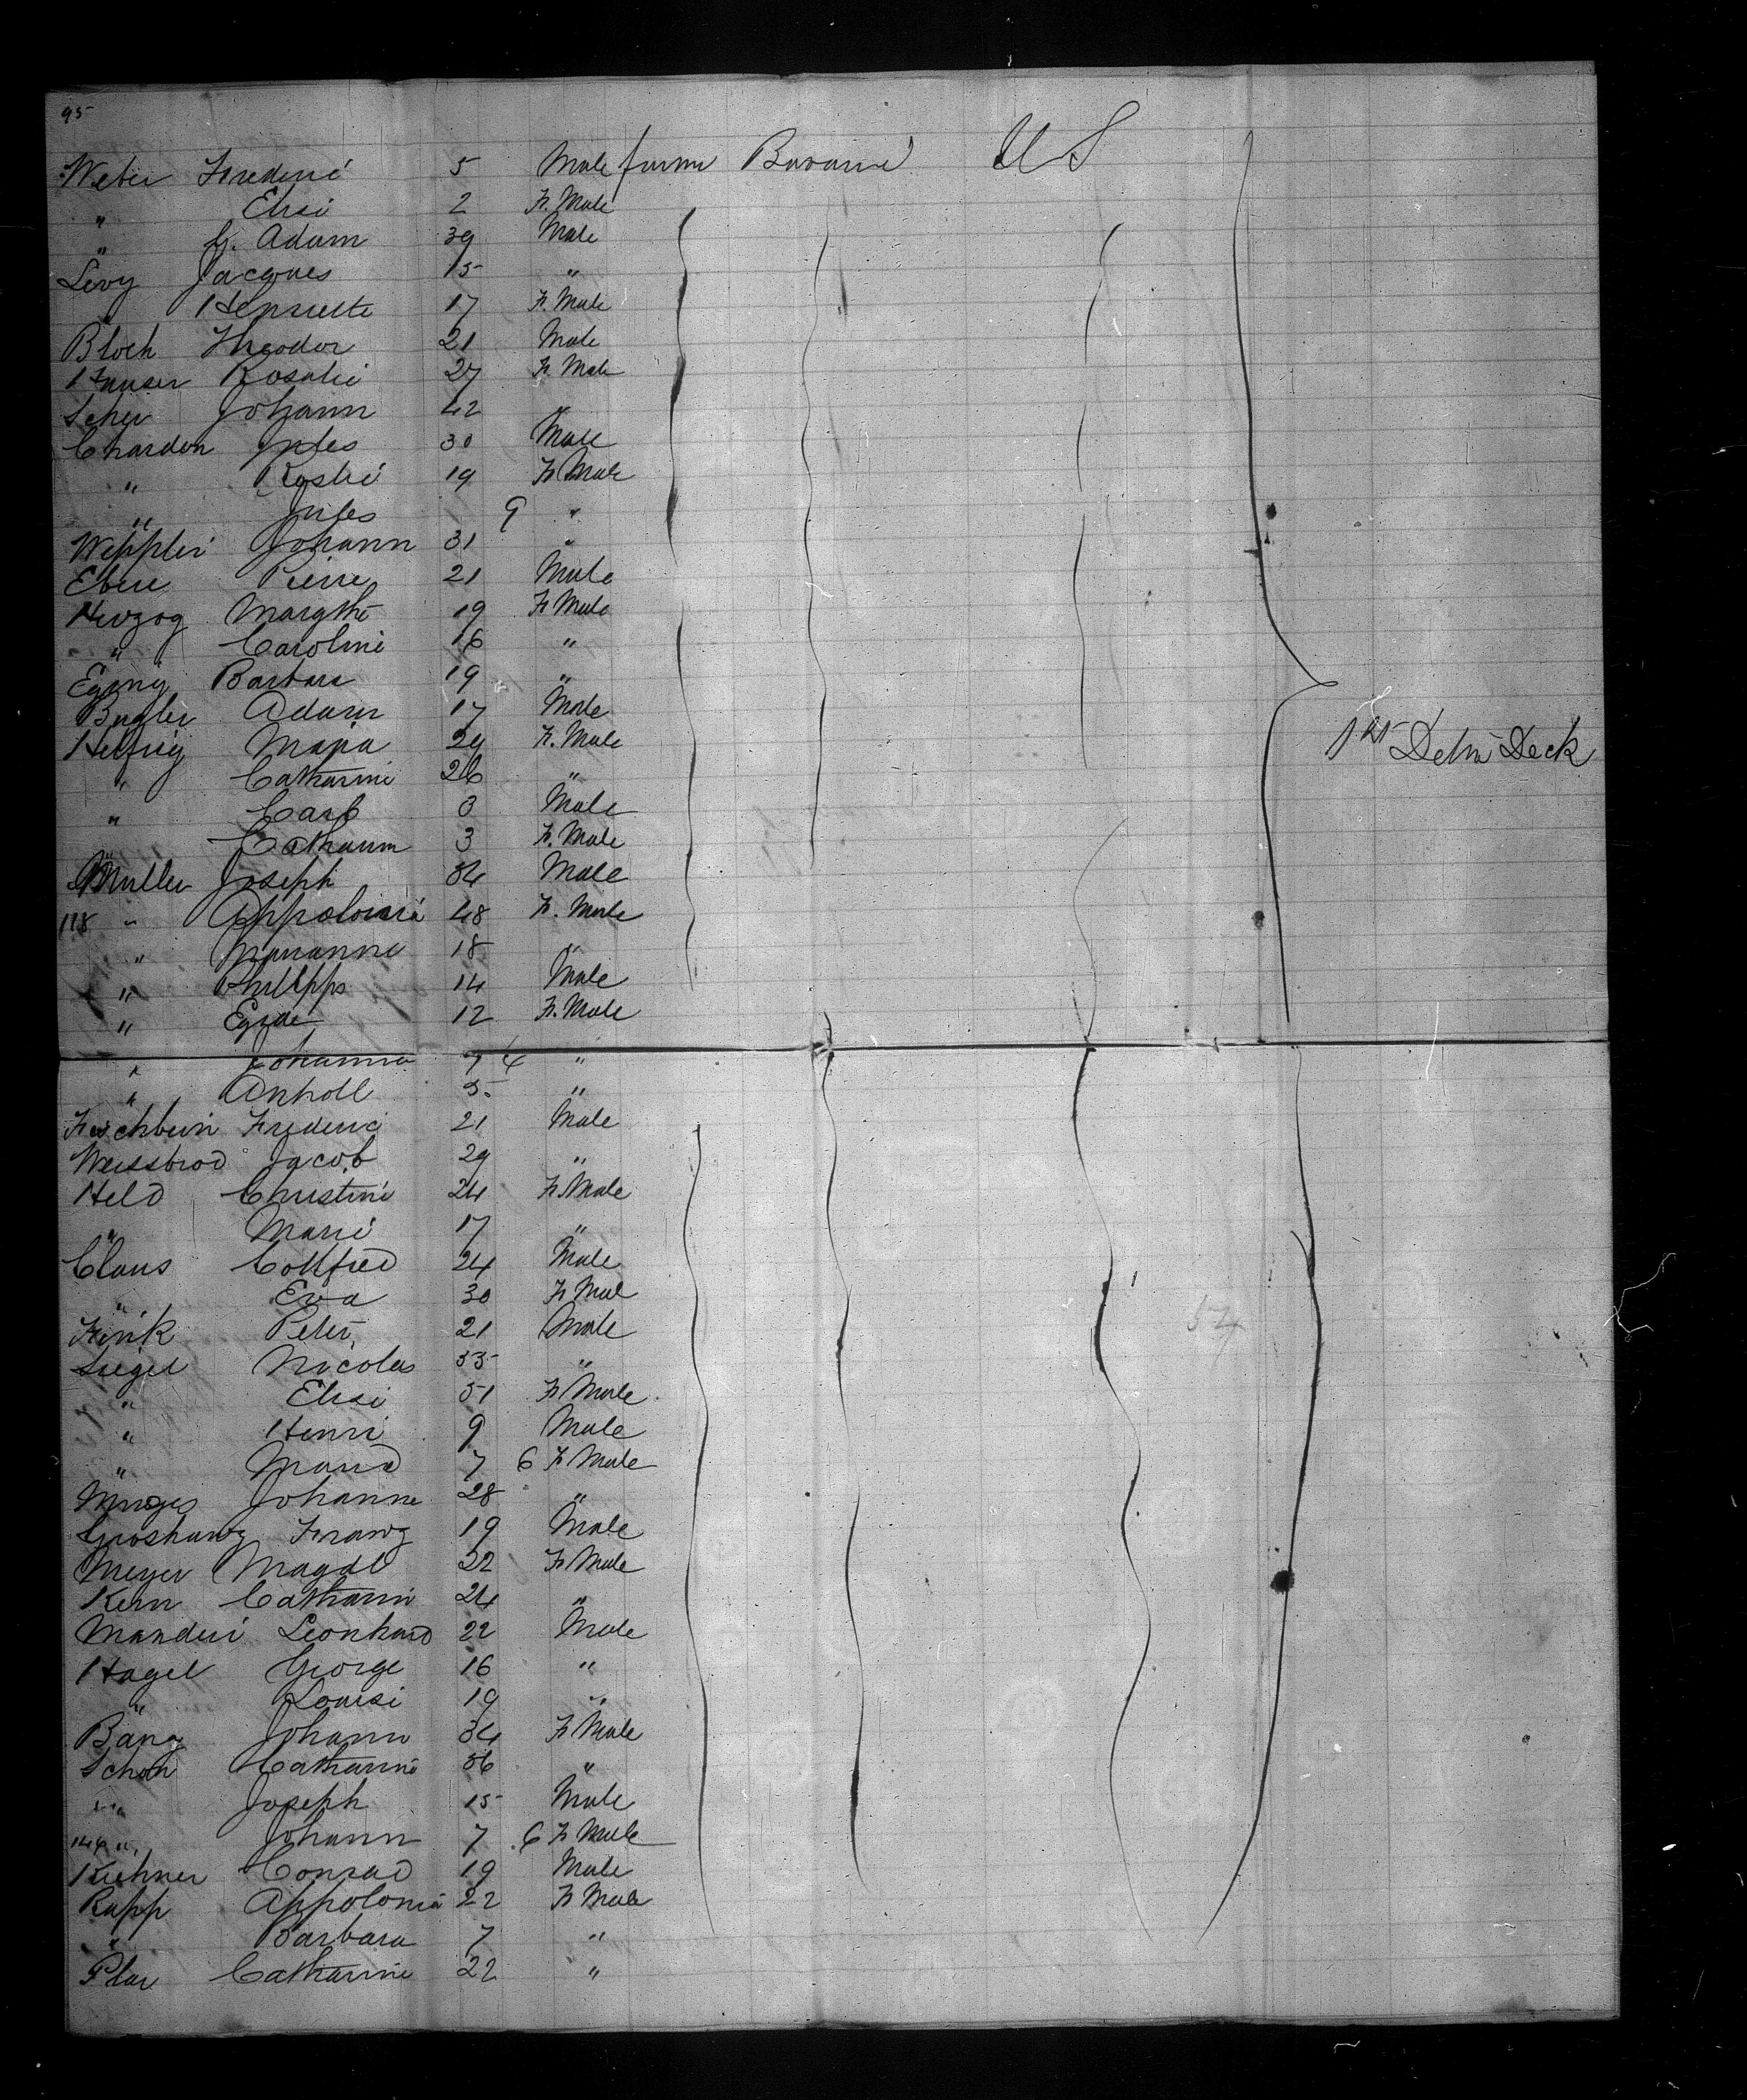 95
Weber Frederic 5 Male farmer Bavaria U S
" Elisi 2 F. Male
" G. Adam 39 Male
Levy Jacques 15 "
" Henriette 17 F. Male
Bloch Theodor 21 Male
Hauser Rosalie 27 F. Male
Scher Johann 42 "
Chardon Jules 30 Male
" Rosalie 19 F Male
" Jules 9 "
Weppler Johann 31 "
Ebere Pierre 21 Male
Herzog Margthe 19 F Male
" Caroline 16 "
Barbara 19 "
Bugler Adam 17 Male
Helfrig Maria 29 F. Male
" Catharine 26 "
" Carl 3 Male
" Catharine 3 F. Male
Muller Joseph 54 Male
118 " Appolonia 48 F. Male
" Marianne 18 "
" Philipps 14 Male
" Egide 12 F. Male
" Johanna 7 4 "
" 5. "
Fischbein Frederic 21 Male
Weissbrod Jacob 29 "
Held Christine 24 F. Male
" Marie 17 "
Claus Gottfried 24 Male
" Eva 30 F Male
Fink Peter 21 Male
Siegel Nicolas 55 "
" Elisi 51 F Male
" Henri 9 Male
" Maria 7 6 F Male
Minges Johanne 28 "
Groshanz Franz 19 Male
Meyer Magdl 22 F Male
Kern Catharine 24 "
Manderi Leonhard 22 Male
Hagel George 16 "
" Louise 19 "
Bang Johann 34 F Male
Schoh Catharine 56 "
" Joseph 15 Male
144 " Johann 7 6 F Male
Kirchner Conrad 19 Male
Rapp Appolonia 22 F Male
" Barbara 7 "
Catharine 22 "
1st Deck
54